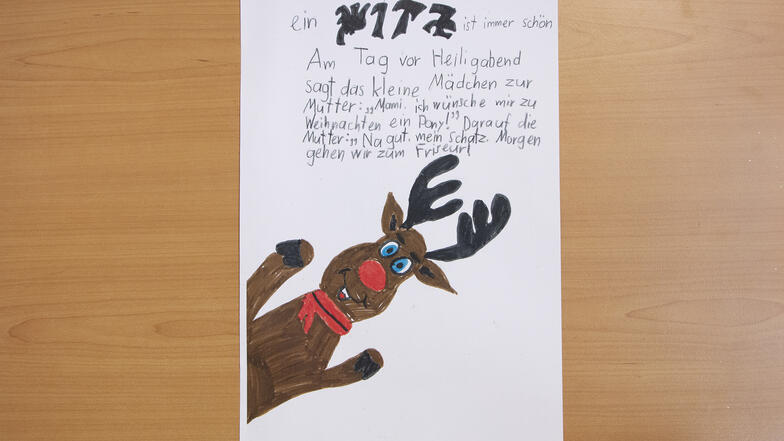 ein WITZ ist immer schön
Am Tag vor Heiligabend
sagt das kleine Mädchen zur
Mutter: „Mami, ich wünsche mir zu
Weihnachten ein Pony!" Darauf die
Mutter: „Na gut, mein Schatz. Morgen
gehen wir zum Friseur!